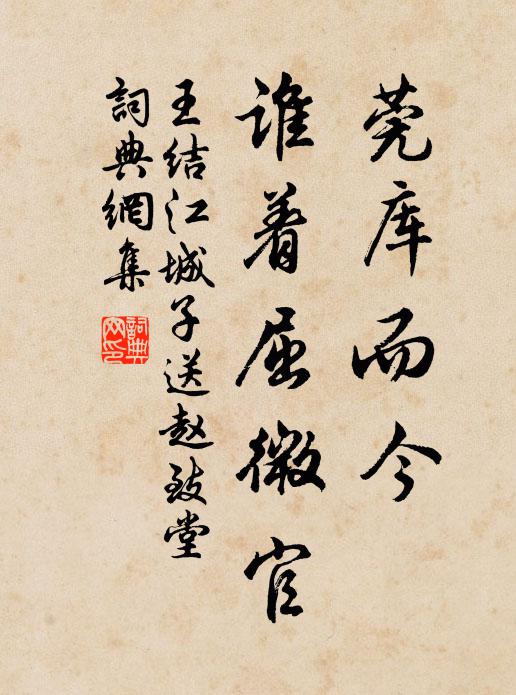 莞库而今
谁着屈微官
王结江城子送赵致堂
詞典網集
詞典网印